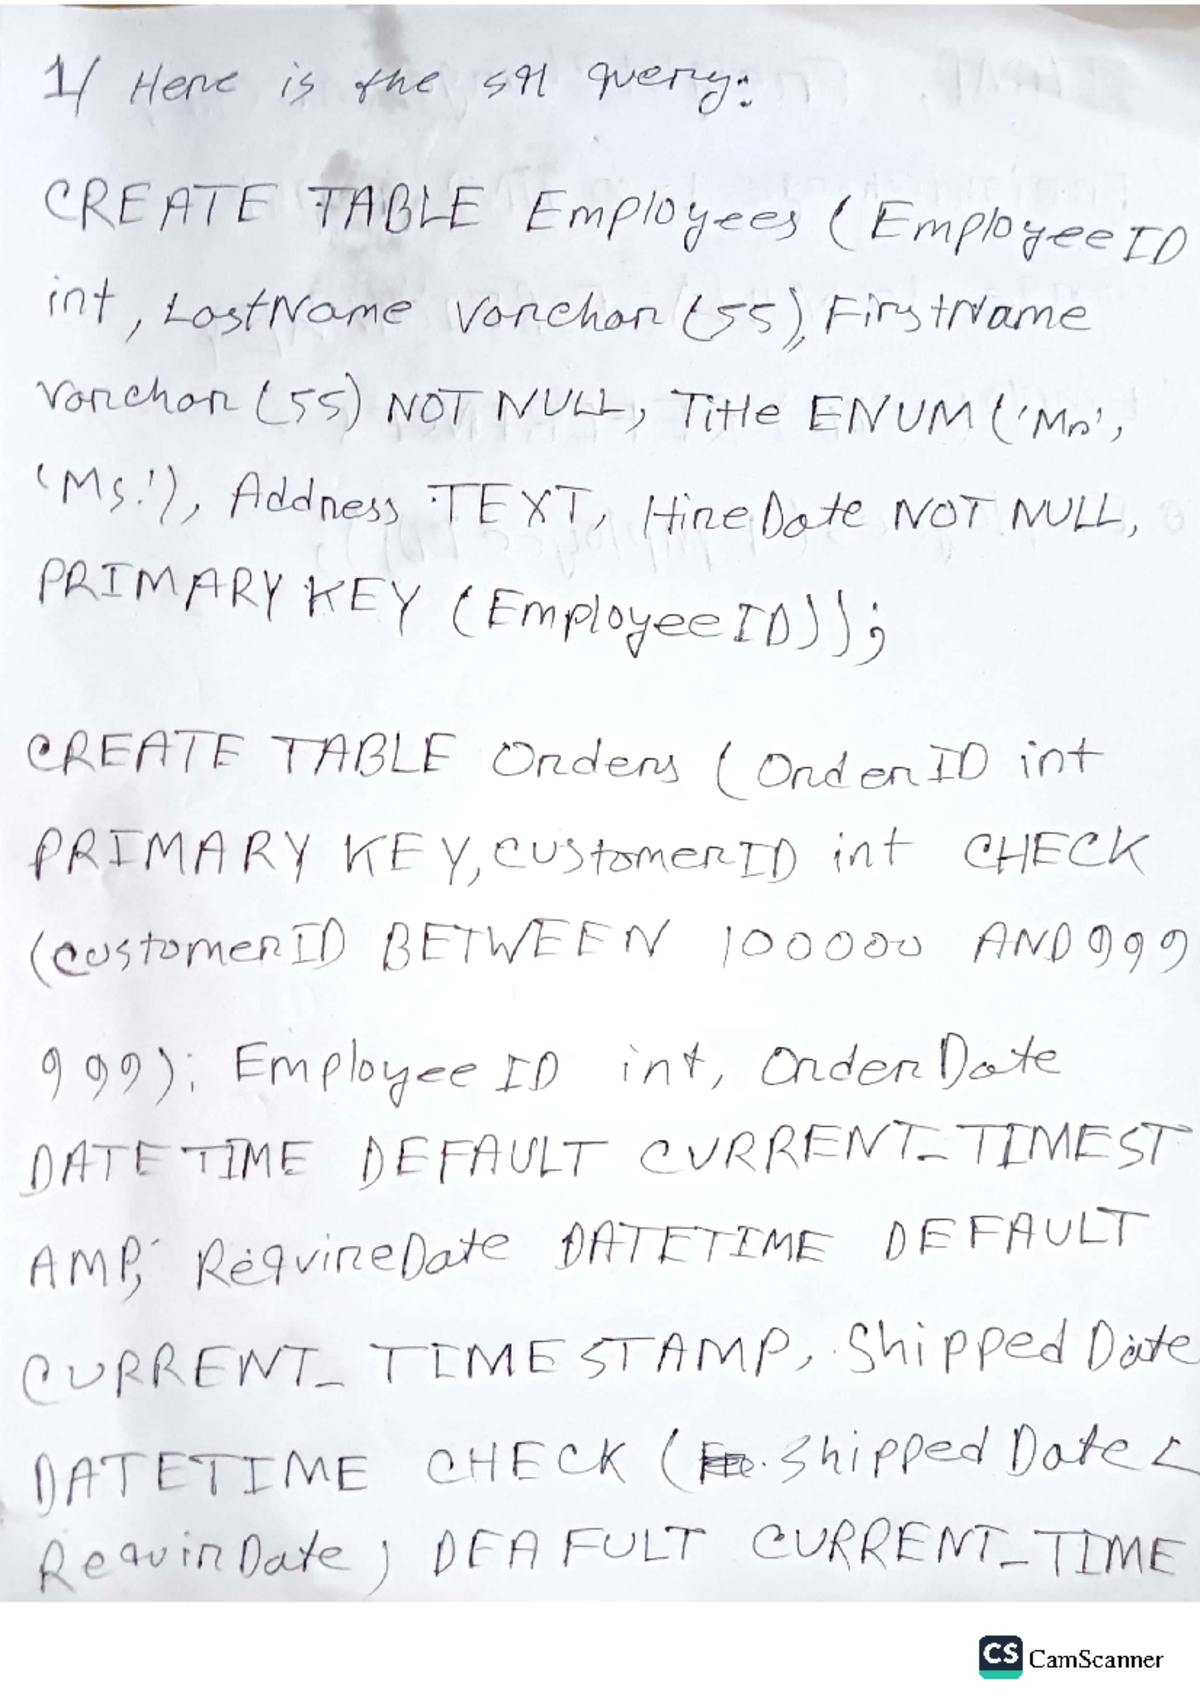 1/ Here is the sql query:
CREATE TABLE Employees (EmployeeID
int, LastName varchar(55), FirstName
varchar(55) NOT NULL, Title ENUM('Mr',
'Ms.'), Address TEXT, HireDate NOT NULL,
PRIMARY KEY (EmployeeID));
CREATE TABLE Orders (OrderID int
PRIMARY KEY, customerID int CHECK
(customerID BETWEEN 100000 AND 999
999); EmployeeID int, OrderDate
DATETIME DEFAULT CURRENT_TIMEST
AMP, RequireDate DATETIME DEFAULT
CURRENT_TIMESTAMP, ShippedDate
DATETIME CHECK (ShippedDate <
RequirDate) DEAFULT CURRENT_TIME
CS CamScanner